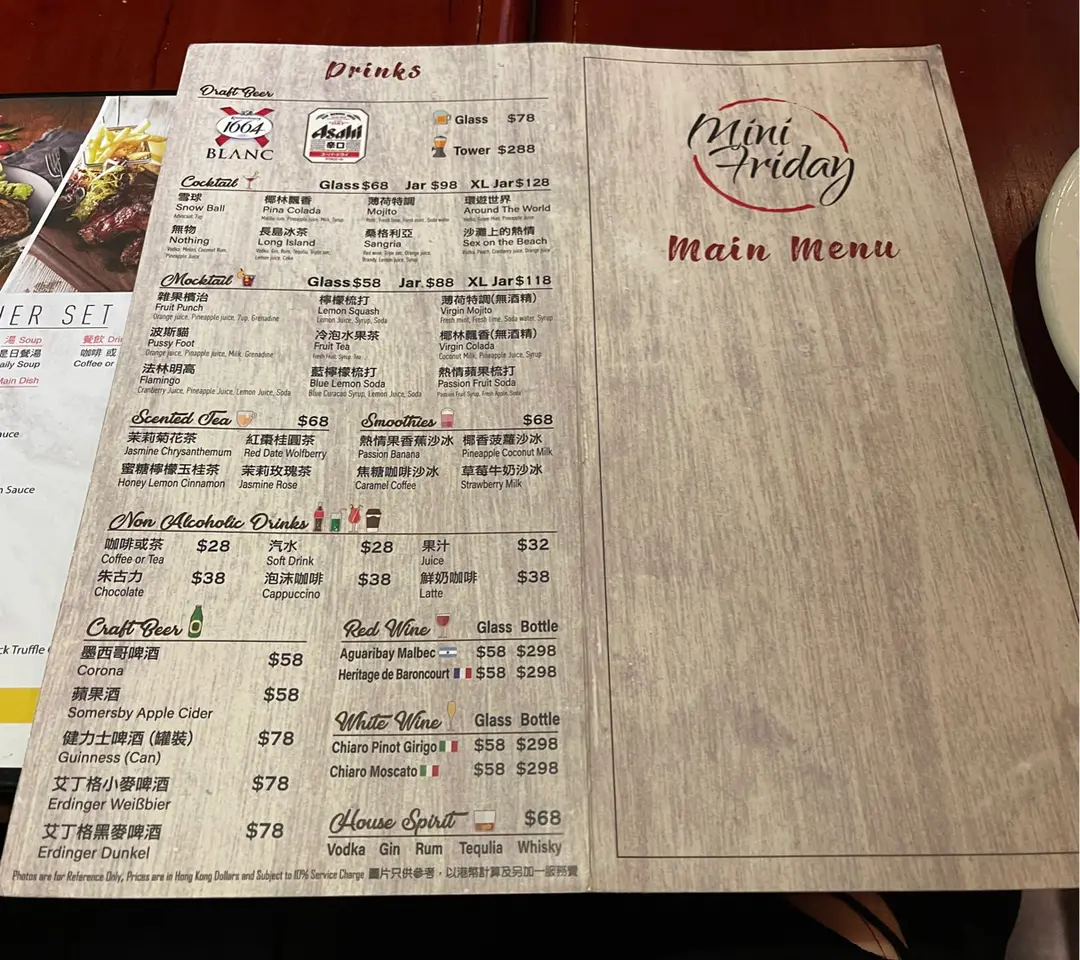 Drinks
Draft Beer
1664
BLANC
Asahi
辛口
Glass $78
Tower $288
Cocktail Glass $68 Jar $98 XL Jar $128
雪球 椰林飄香 薄荷特調 環遊世界
Snow Ball Pina Colada Mojito Around The World
Advocaat, 7up Malibu rum, Pineapple juice, Milk, Syrup Rum, Fresh lime, Fresh mint, Soda water
無物 長島冰茶 桑格利亞 沙灘上的熱情
Nothing Long Island Sangria Sex on the Beach
Vodka, Midori, Coconut Rum, Vodka, Gin, Rum, Tequila, Triple sec, Red wine, Triple sec, Orange juice, Vodka, Peach, Cranberry juice, Orange juice
Pineapple Juice Lemon juice, Coke Brandy, Lemon juice, Syrup
Mocktail Glass $58 Jar $88 XL Jar $118
雜果檳治 檸檬梳打 薄荷特調(無酒精)
Fruit Punch Lemon Squash Virgin Mojito
Orange juice, Pineapple juice, 7up, Grenadine Lemon Juice, Syrup, Soda Fresh mint, Fresh lime, Soda water, Syrup
波斯貓 冷泡水果茶 椰林飄香(無酒精)
Pussy Foot Fruit Tea Virgin Colada
Orange juice, Pinapple juice, Milk, Grenadine Fresh Fruit, Syrup, Tea Coconut Milk, Pineapple Juice, Syrup
法林明高 藍檸檬梳打 熱情蘋果梳打
Flamingo Blue Lemon Soda Passion Fruit Soda
Cranberry Juice, Pineapple Juice, Lemon Juice, Soda Blue Curacao Syrup, Lemon Juice, Soda Passion Fruit Syrup, Fresh Apple, Soda
Scented Tea $68 Smoothies $68
茉莉菊花茶 紅棗桂圓茶 熱情果香蕉沙冰 椰香菠蘿沙冰
Jasmine Chrysanthemum Red Date Wolfberry Passion Banana Pineapple Coconut Milk
蜜糖檸檬玉桂茶 茉莉玫瑰茶 焦糖咖啡沙冰 草莓牛奶沙冰
Honey Lemon Cinnamon Jasmine Rose Caramel Coffee Strawberry Milk
Non Alcoholic Drinks
咖啡或茶 $28 汽水 $28 果汁 $32
Coffee or Tea Soft Drink Juice
朱古力 $38 泡沫咖啡 $38 鮮奶咖啡 $38
Chocolate Cappuccino Latte
Craft Beer
墨西哥啤酒 $58
Corona
蘋果酒 $58
Somersby Apple Cider
健力士啤酒 (罐裝) $78
Guinness (Can)
艾丁格小麥啤酒 $78
Erdinger Weißbier
艾丁格黑麥啤酒 $78
Erdinger Dunkel
Red Wine Glass Bottle
Aguaribay Malbec $58 $298
Heritage de Baroncourt $58 $298
White Wine Glass Bottle
Chiaro Pinot Girigo $58 $298
Chiaro Moscato $58 $298
House Spirit $68
Vodka Gin Rum Tequlia Whisky
Photos are for Reference Only, Prices are in Hong Kong Dollars and Subject to 10% Service Charge 圖片只供參考，以港幣計算及另加一服務費
Mini
Friday
Main Menu
ER SET
湯 Soup 餐飲
是日餐湯 咖啡 或
aily Soup Coffee or
Main Dish
auce
Sauce
ck Truffle